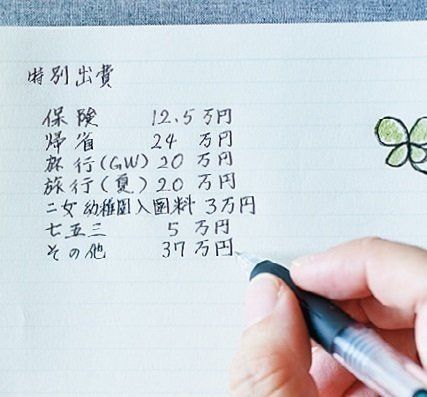 特別出費
保険 12.5万円
帰省 24 万円
旅行(GW) 20 万円
旅行(夏) 20 万円
二女幼稚園入園料 3万円
七五三 5 万円
その他 37 万円